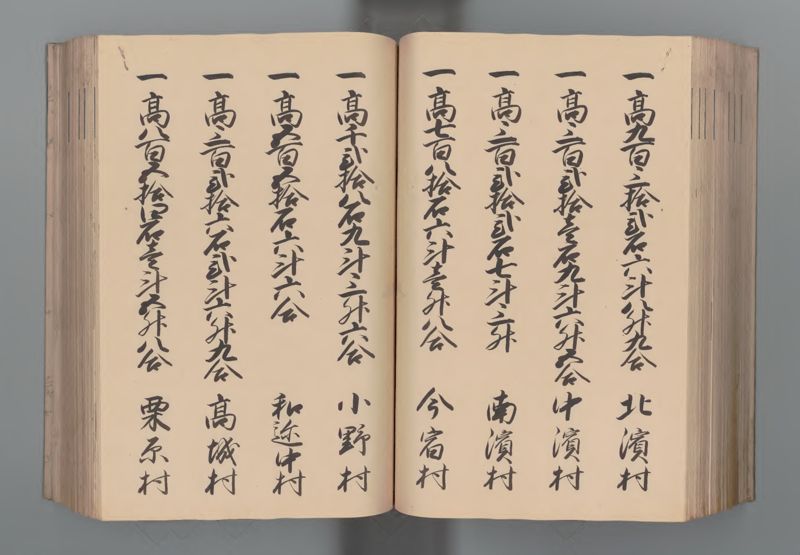 一高九百三拾弐石六斗八升九合 北濱村
一高三百弐拾壱石九斗六升五合 中濱村
一高三百弐拾弐石七斗三升 南濱村
一高七百八拾石六斗壱升八合 今宿村
一高千弐拾八石九斗三升六合 小野村
一高五百五拾石六斗六合 和迩中村
一高三百弐拾六石弐斗六升九合 高城村
一高八百五拾四石壱斗五升八合 栗原村